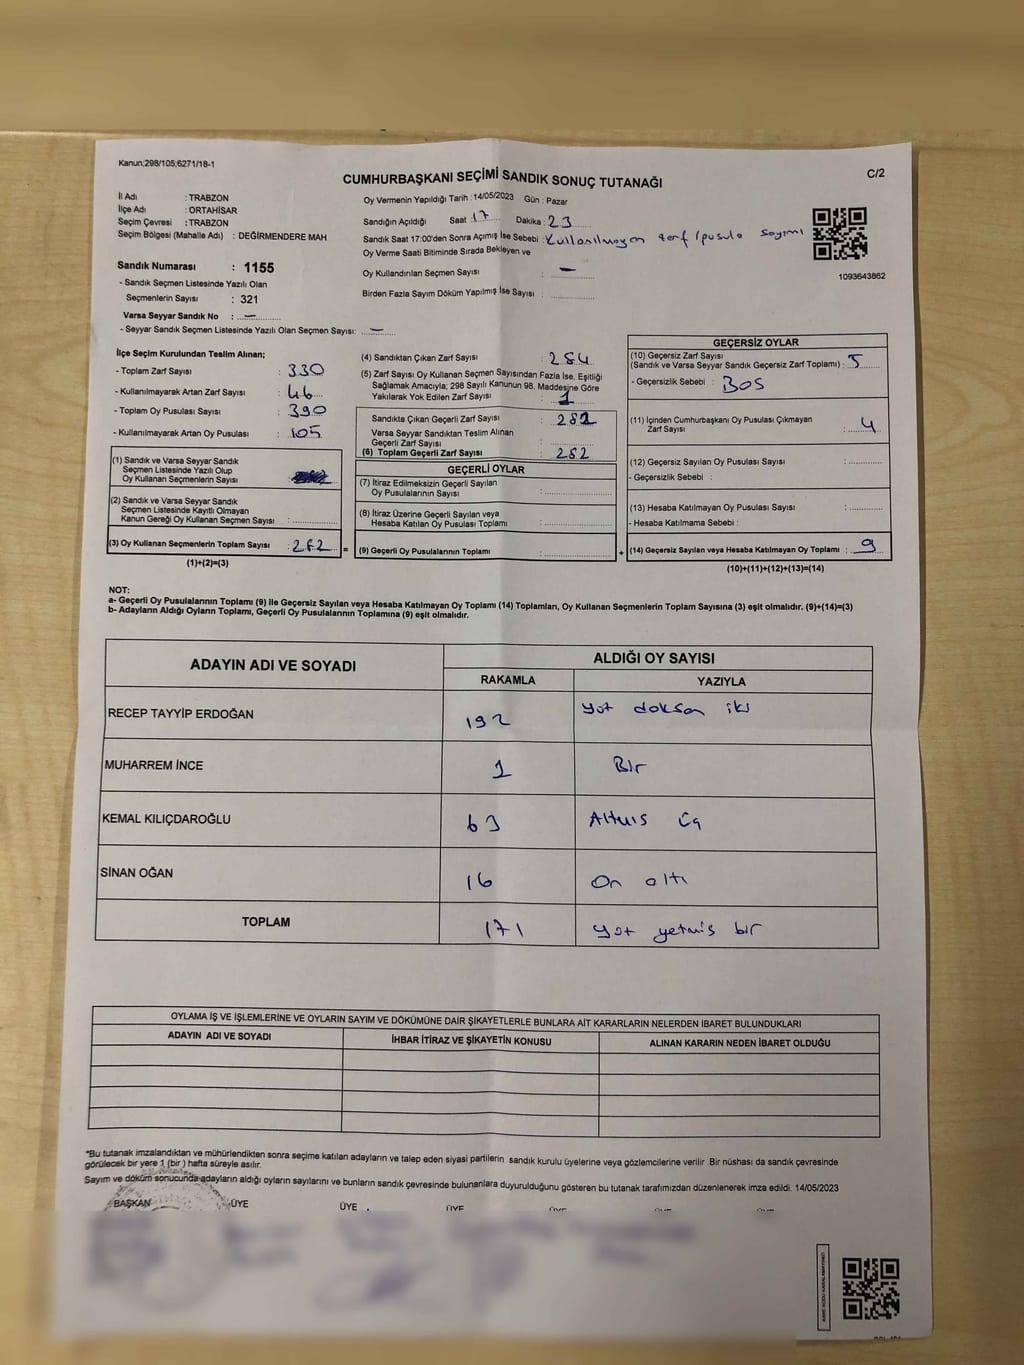 Kanun;298/105;6271/18-1
C/2
CUMHURBAŞKANI SEÇİMİ SANDIK SONUÇ TUTANAĞI
İl Adı : TRABZON
İlçe Adı : ORTAHİSAR
Seçim Çevresi : TRABZON
Seçim Bölgesi (Mahalle Adı) : DEĞİRMENDERE MAH
Sandık Numarası : 1155
- Sandık Seçmen Listesinde Yazılı Olan
Seçmenlerin Sayısı : 321
Varsa Seyyar Sandık No : —
- Seyyar Sandık Seçmen Listesinde Yazılı Olan Seçmen Sayısı: —
Oy Vermenin Yapıldığı Tarih : 14/05/2023 Gün : Pazar
Sandığın Açıldığı Saat : 17 Dakika : 23
Sandık Saat 17:00'den Sonra Açımış İse Sebebi : Kullanılmayan zarf/pusula sayımı
Oy Verme Saati Bitiminde Sırada Bekleyen ve
Oy Kullandırılan Seçmen Sayısı : —
Birden Fazla Sayım Döküm Yapılmış İse Sayısı :
1093643862
İlçe Seçim Kurulundan Teslim Alınan;
- Toplam Zarf Sayısı : 330
- Kullanılmayarak Artan Zarf Sayısı : 46
- Toplam Oy Pusulası Sayısı : 390
- Kullanılmayarak Artan Oy Pusulası : 105
(1) Sandık ve Varsa Seyyar Sandık
Seçmen Listesinde Yazılı Olup
Oy Kullanan Seçmenlerin Sayısı :
(2) Sandık ve Varsa Seyyar Sandık
Seçmen Listesinde Kayıtlı Olmayan
Kanun Gereği Oy Kullanan Seçmen Sayısı :
(3) Oy Kullanan Seçmenlerin Toplam Sayısı : 262 =
(1)+(2)=(3)
(4) Sandıktan Çıkan Zarf Sayısı : 284
(5) Zarf Sayısı Oy Kullanan Seçmen Sayısından Fazla İse, Eşitliği
Sağlamak Amacıyla; 298 Sayılı Kanunun 98. Maddesine Göre
Yakılarak Yok Edilen Zarf Sayısı : 1
Sandıkta Çıkan Geçerli Zarf Sayısı : 282
Varsa Seyyar Sandıktan Teslim Alınan
Geçerli Zarf Sayısı :
(6) Toplam Geçerli Zarf Sayısı : 282
GEÇERLİ OYLAR
(7) İtiraz Edilmeksizin Geçerli Sayılan
Oy Pusulalarının Sayısı :
(8) İtiraz Üzerine Geçerli Sayılan veya
Hesaba Katılan Oy Pusulası Toplamı :
(9) Geçerli Oy Pusulalarının Toplamı : +
GEÇERSİZ OYLAR
(10) Geçersiz Zarf Sayısı
(Sandık ve Varsa Seyyar Sandık Geçersiz Zarf Toplamı) : 5
- Geçersizlik Sebebi : BOS
(11) İçinden Cumhurbaşkanı Oy Pusulası Çıkmayan
Zarf Sayısı : 4
(12) Geçersiz Sayılan Oy Pusulası Sayısı :
- Geçersizlik Sebebi :
(13) Hesaba Katılmayan Oy Pusulası Sayısı :
- Hesaba Katılmama Sebebi :
(14) Geçersiz Sayılan veya Hesaba Katılmayan Oy Toplamı : 9
(10)+(11)+(12)+(13)=(14)
NOT:
a- Geçerli Oy Pusulalarının Toplamı (9) ile Geçersiz Sayılan veya Hesaba Katılmayan Oy Toplamı (14) Toplamları, Oy Kullanan Seçmenlerin Toplam Sayısına (3) eşit olmalıdır. (9)+(14)=(3)
b- Adayların Aldığı Oyların Toplamı, Geçerli Oy Pusulalarının Toplamına (9) eşit olmalıdır.
ADAYIN ADI VE SOYADI
ALDIĞI OY SAYISI
RAKAMLA
YAZIYLA
RECEP TAYYİP ERDOĞAN 192 yüt doksan iki
MUHARREM İNCE 1 Bir
KEMAL KILIÇDAROĞLU 63 Altmıs Üç
SİNAN OĞAN 16 On altı
TOPLAM 171 yüt yetmis bir
OYLAMA İŞ VE İŞLEMLERİNE VE OYLARIN SAYIM VE DÖKÜMÜNE DAİR ŞİKAYETLERLE BUNLARA AİT KARARLARIN NELERDEN İBARET BULUNDUKLARI
ADAYIN ADI VE SOYADI
İHBAR İTİRAZ VE ŞİKAYETİN KONUSU
ALINAN KARARIN NEDEN İBARET OLDUĞU
*Bu tutanak imzalandıktan ve mühürlendikten sonra seçime katılan adayların ve talep eden siyasi partilerin sandık kurulu üyelerine veya gözlemcilerine verilir .Bir nüshası da sandık çevresinde
görülecek bir yere 1 (bir ) hafta süreyle asılır.
Sayım ve döküm sonucunda adayların aldığı oyların sayılarını ve bunların sandık çevresinde bulunanlara duyurulduğunu gösteren bu tutanak tarafımızdan düzenlenerek imza edildi. 14/05/2023
BAŞKAN ÜYE ÜYE ÜYE ÜYE